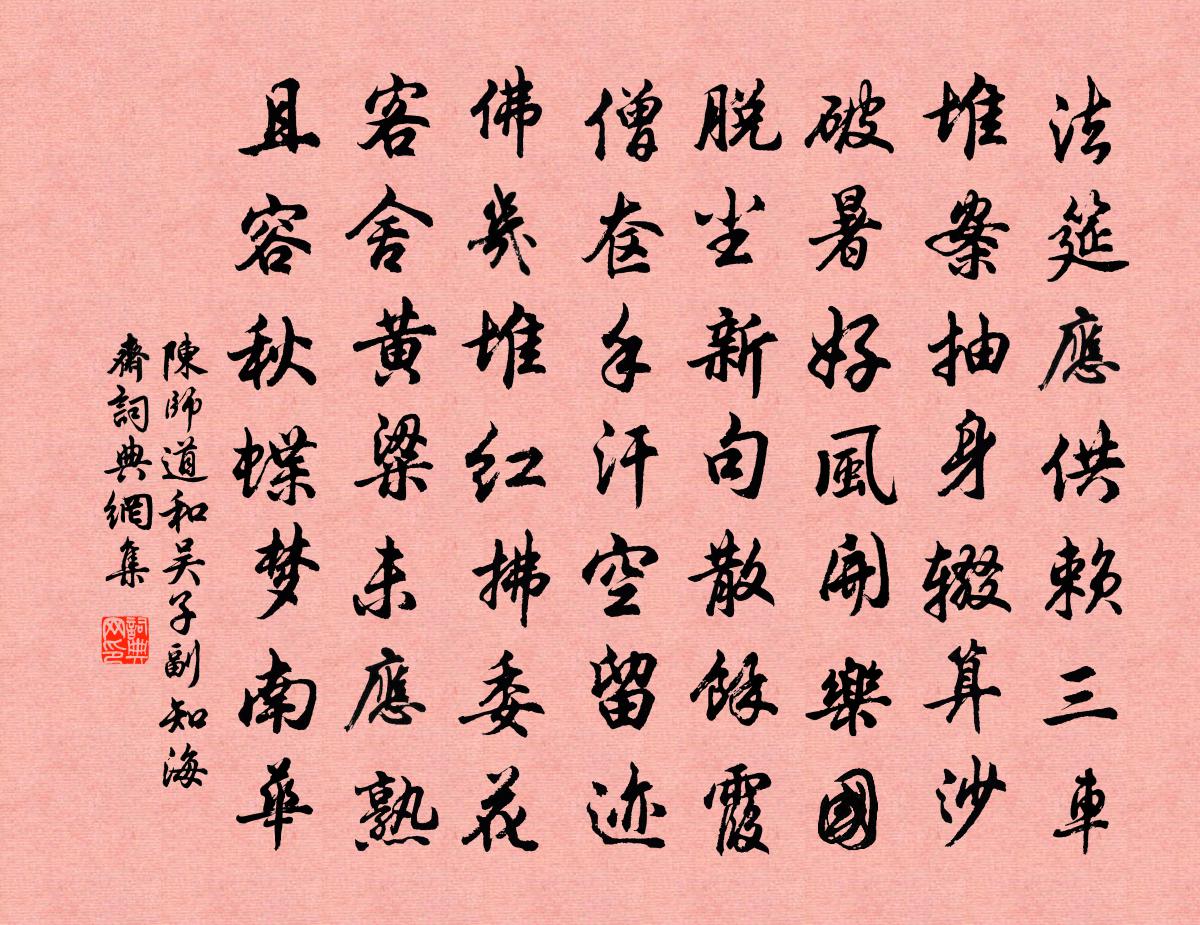 法筵應供赖三車
堆案抽身辍算沙
破暑好風開樂國
脱尘新句散餘霞
僧奁手汗空留迹
佛幾堆红拂委花
客舍黄粱未應熟
且容秋蝶梦南華
陳師道和吴子副知海
齋詞典網集
詞典网印